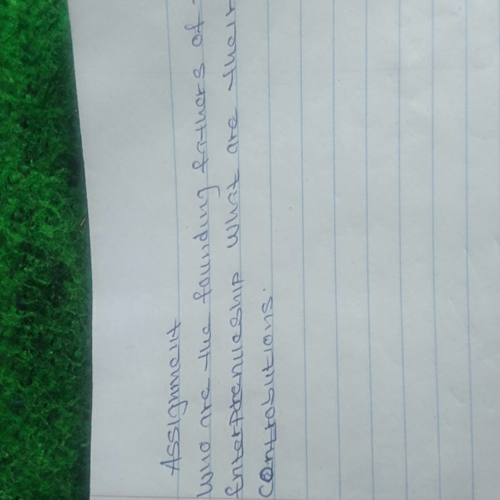 Assignment
Who are the founding fathers of
Enterprenueship What are their
Contrabutions.